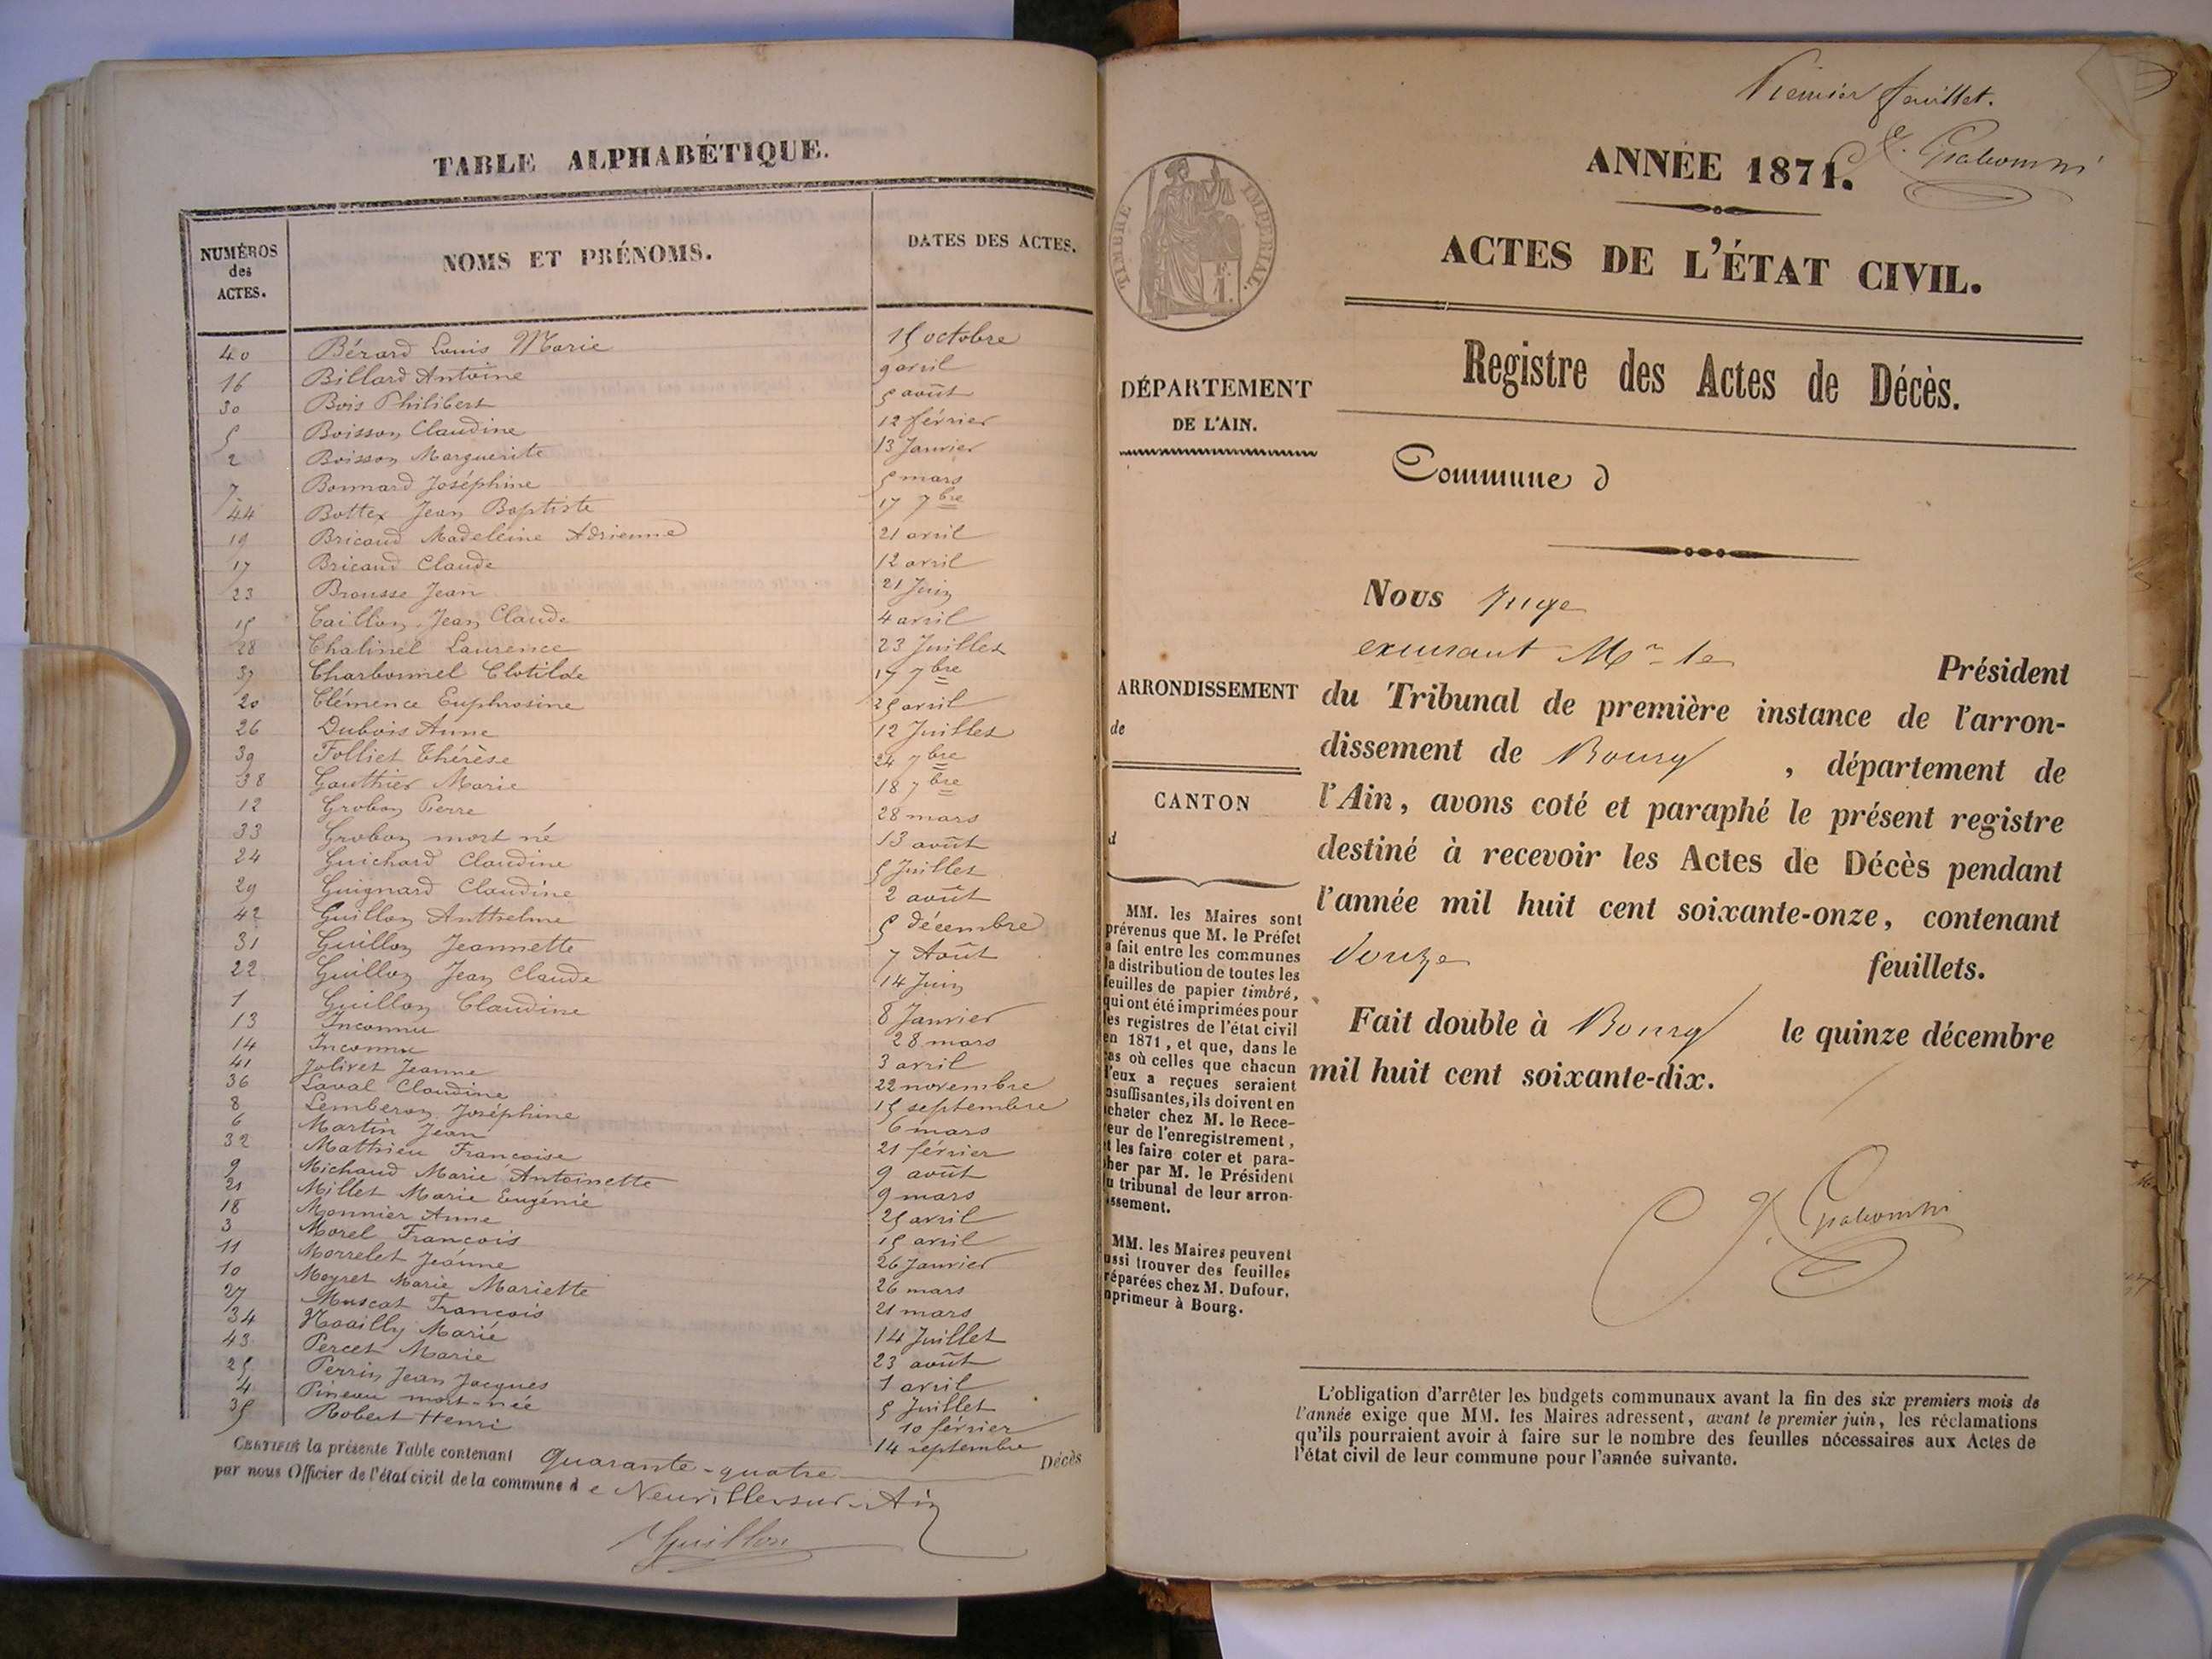 TABLE ALPHABÉTIQUE.
NUMÉROS des ACTES. NOMS ET PRÉNOMS. DATES DES ACTES.
40 Bérard Louis Marie 15 octobre
16 Billard Antoine 9 avril
30 Bois Philibert 5 août
5 Boisson Claudine 12 février
2 Boisson Marguerite 13 Janvier
7 Bonnard Joséphine 5 mars
44 Bottex Jean Baptiste 17 7bre
19 Bricaud Madeleine Adrienne 21 avril
17 Bricaud Claude 12 avril
23 Brousse Jean 21 Juin
15 Caillon Jean Claude 4 avril
28 Chalinel Laurence 23 Juillet
37 Charbonnel Clotilde 17 7bre
20 Clémence Euphrosine 25 avril
26 Dubois Anne 12 Juillet
39 Folliet Thérèse 24 7bre
38 Gauthier Marie 18 7bre
12 Grobon Pierre 28 mars
33 Grobon mort né 13 août
24 Guichard Claudine 5 Juillet
29 Guignard Claudine 2 août
42 Guillon Anthelme 5 décembre
31 Guillon Jeannette 7 Août
22 Guillon Jean Claude 14 Juin
1 Guillon Claudine 8 Janvier
13 Inconnu 28 mars
14 Inconnu 3 avril
41 Jolivet Jeanne 22 novembre
36 Laval Claudine 15 septembre
8 Lemberon Joséphine 6 mars
6 Martin Jean 21 février
32 Mathieu Françoise 9 août
9 Michaud Marie Antoinette 9 mars
21 Millet Marie Eugénie 25 avril
18 Monnier Anne 15 avril
3 Morel François 26 Janvier
11 Morrelet Jeanne 26 mars
10 Moyret Marie Mariette 21 mars
27 Muscat François 14 Juillet
34 Noailly Marie 23 août
43 Percet Marie 1 avril
25 Perrin Jean Jacques 5 Juillet
4 Pineau mort-née 10 février
35 Robert Henri 14 septembre
CERTIFIÉ la présente Table contenant Quarante-quatre Décès
par nous Officier de l'état civil de la commune de Neuville-sur-Ain
Guillon
Premier feuillet.
ANNÉE 1871.
ACTES DE L'ÉTAT CIVIL.
TIMBRE IMPÉRIAL.
Registre des Actes de Décès.
DÉPARTEMENT
DE L'AIN.
Commune d
Nous Juge
excusant Mr le Président
ARRONDISSEMENT
de
du Tribunal de première instance de l'arron-
dissement de Bourg, département de
CANTON
d
l'Ain, avons coté et paraphé le présent registre
destiné à recevoir les Actes de Décès pendant
l'année mil huit cent soixante-onze, contenant
douze feuillets.
Fait double à Bourg le quinze décembre
mil huit cent soixante-dix.
MM. les Maires sont
prévenus que M. le Préfet
a fait entre les communes
la distribution de toutes les
feuilles de papier timbré,
qui ont été imprimées pour
les registres de l'état civil
en 1871, et que, dans le
cas où celles que chacun
d'eux a reçues seraient
insuffisantes, ils doivent en
acheter chez M. le Rece-
veur de l'enregistrement,
et les faire coter et para-
pher par M. le Président
du tribunal de leur arron-
dissement.
MM. les Maires peuvent
aussi trouver des feuilles
préparées chez M. Dufour,
imprimeur à Bourg.
L'obligation d'arrêter les budgets communaux avant la fin des six premiers mois de
l'année exige que MM. les Maires adressent, avant le premier juin, les réclamations
qu'ils pourraient avoir à faire sur le nombre des feuilles nécessaires aux Actes de
l'état civil de leur commune pour l'année suivante.